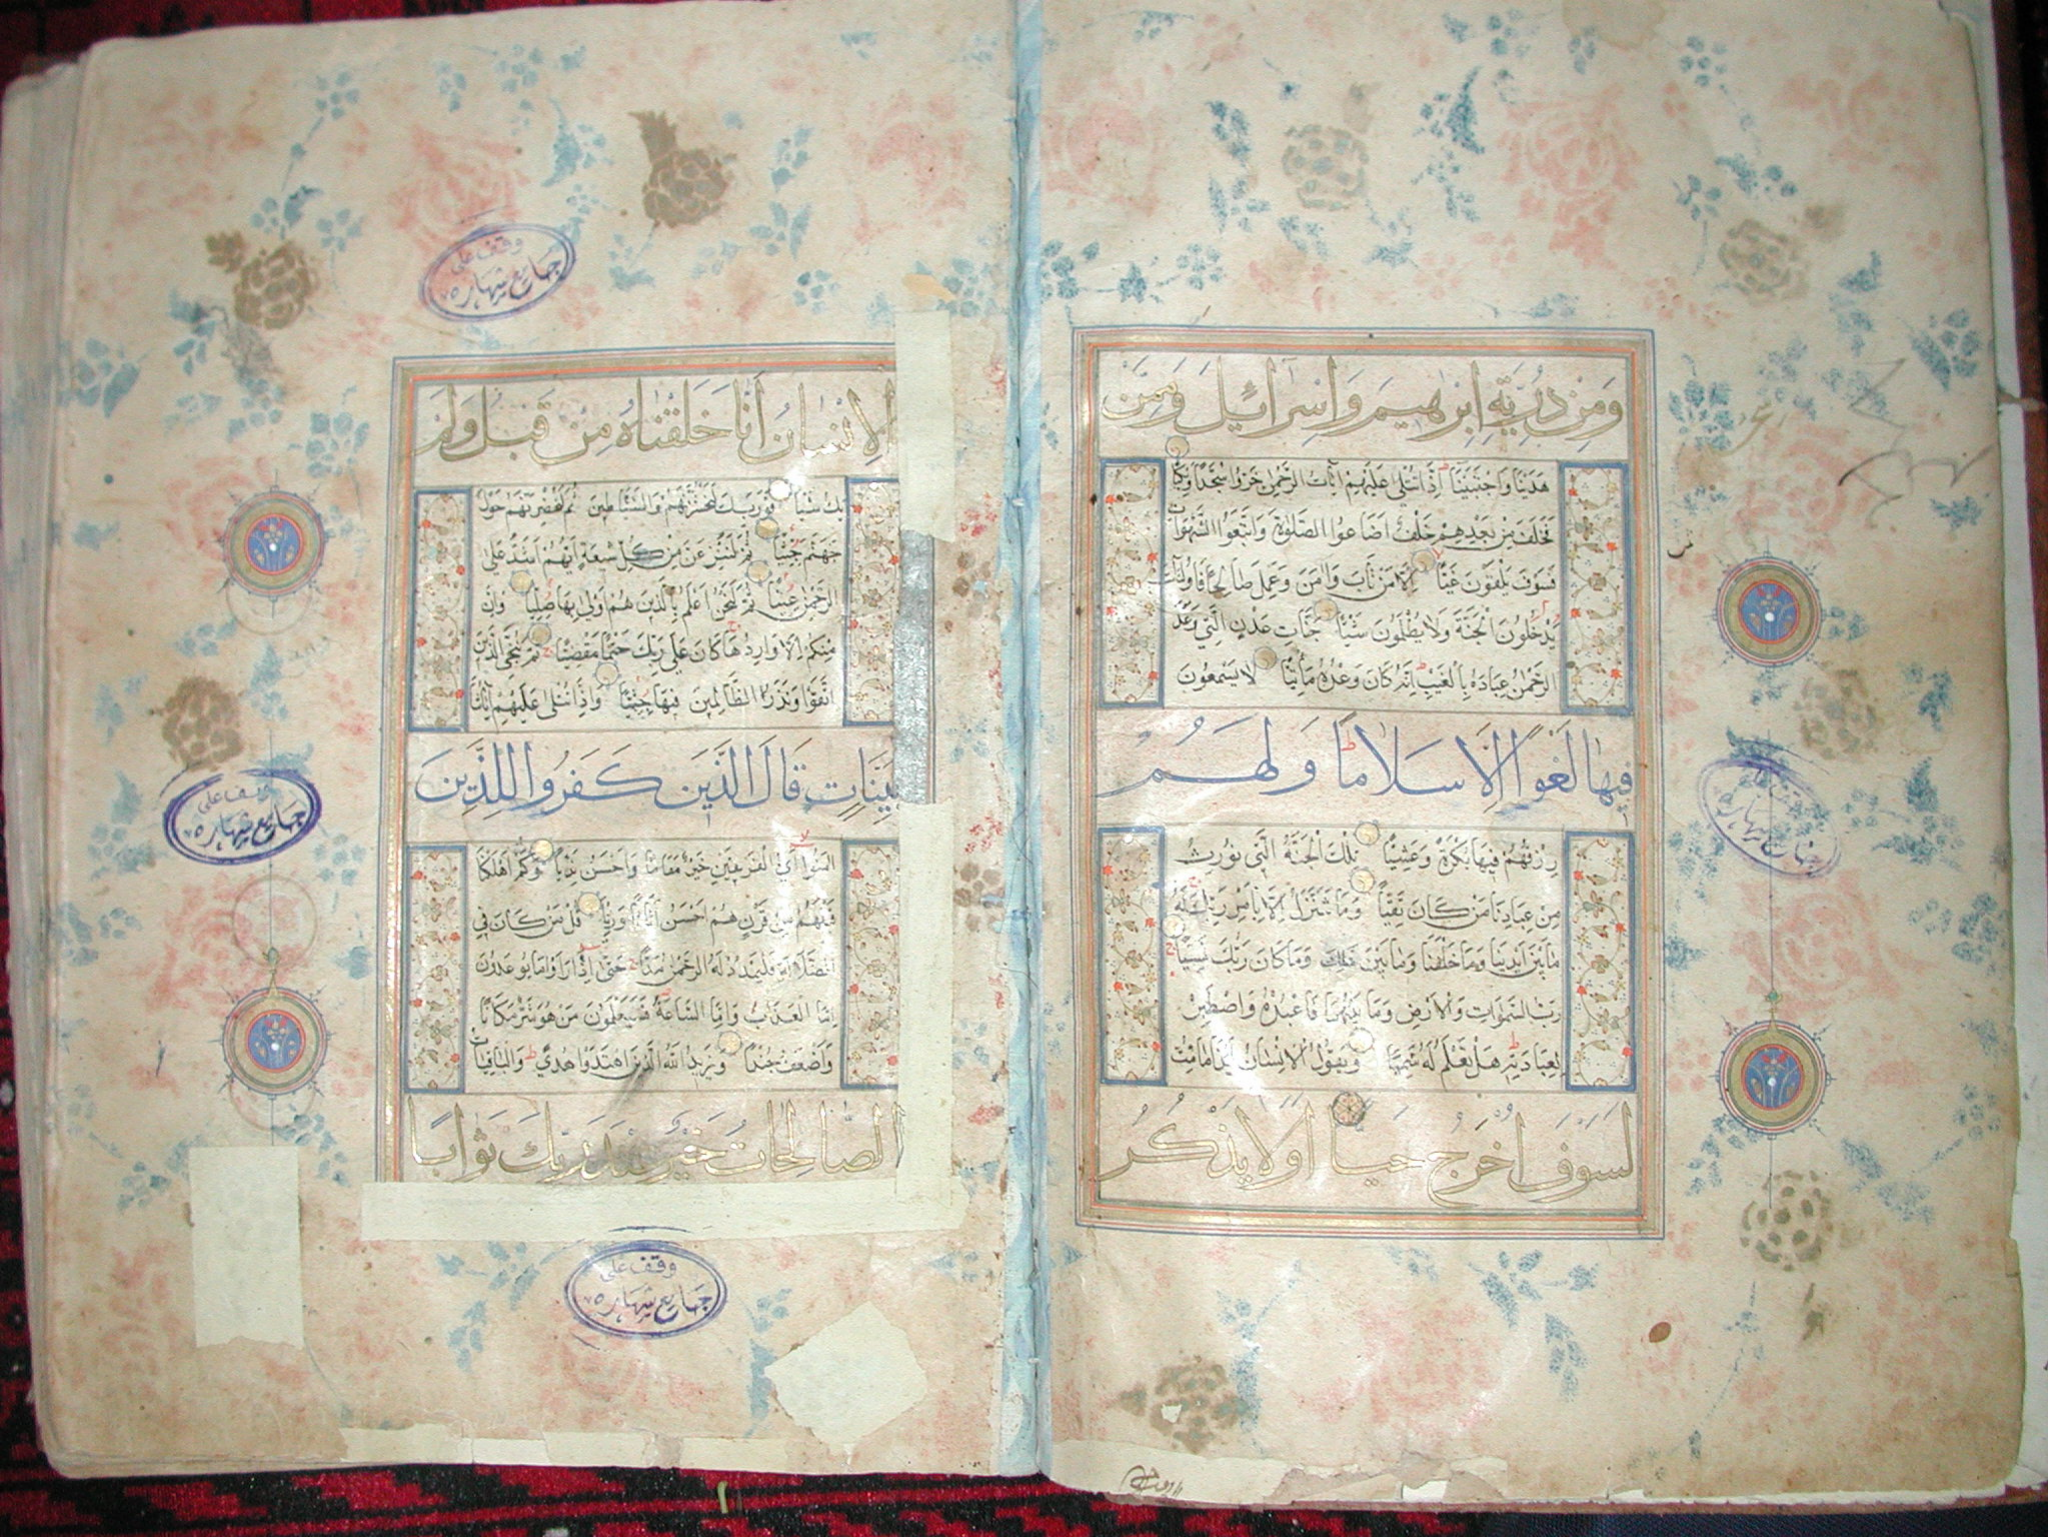 ومن ذرية ابرهيم واسرائيل وممن
هدينا واجتبينا اذا تتلى عليهم ايات الرحمن خروا سجدا وبكيا
فخلف من بعدهم خلف اضاعوا الصلوة واتبعوا الشهوات
فسوف يلقون غيا الا من تاب وامن وعمل صالحا فاولئك
يدخلون الجنة ولا يظلمون شيئا جنات عدن التي وعد
الرحمن عباده بالغيب انه كان وعده مأتيا لا يسمعون
فيها لغوا الا سلاما ولهم
رزقهم فيها بكرة وعشيا تلك الجنة التي نورث
من عبادنا من كان تقيا وما نتنزل الا بامر ربك له
ما بين ايدينا وما خلفنا وما بين ذلك وما كان ربك نسيا
رب السموات والارض وما بينهما فاعبده واصطبر
لعبادته هل تعلم له سميا ويقول الانسان ائذا ما مت
لسوف اخرج حيا اولا يذكر
الانسان انا خلقناه من قبل ولم
يك شيئا فوربك لنحشرنهم والشياطين ثم لنحضرنهم حول
جهنم جثيا ثم لننزعن من كل شيعة ايهم اشد على
الرحمن عتيا ثم لنحن اعلم بالذين هم اولى بها صليا وان
منكم الا واردها كان على ربك حتما مقضيا ثم ننجي الذين
اتقوا ونذر الظالمين فيها جثيا واذا تتلى عليهم اياتنا
بينات قال الذين كفروا للذين
امنوا اي الفريقين خير مقاما واحسن نديا وكم اهلكنا
قبلهم من قرن هم احسن اثاثا ورئيا قل من كان في
الضلالة فليمدد له الرحمن مدا حتى اذا راوا ما يوعدون
اما العذاب واما الساعة فسيعلمون من هو شر مكانا
واضعف جندا ويزيد الله الذين اهتدوا هدى والباقيات
الصالحات خير عند ربك ثوابا
وقف على
جامع شهاره
وقف على
جامع شهاره
وقف على
جامع شهاره